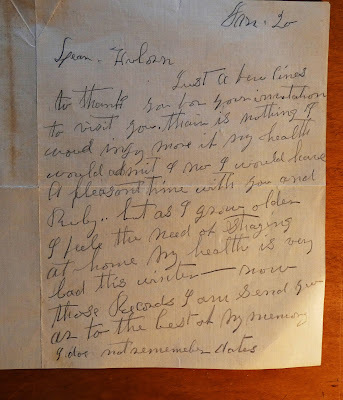 Jan. 20
Dear
Just a few lines
to thank you for your invitation
to visit you. Thair is nothing I
woud injoy more if my health
would admit I no I would have
A pleasant time with you and
Ruby.. but as I grow older
I feele the need of staying
at home My health is very
bad this winter — now
those Records I am Send you
ar to the best of my memory
I doe not rememeber dates